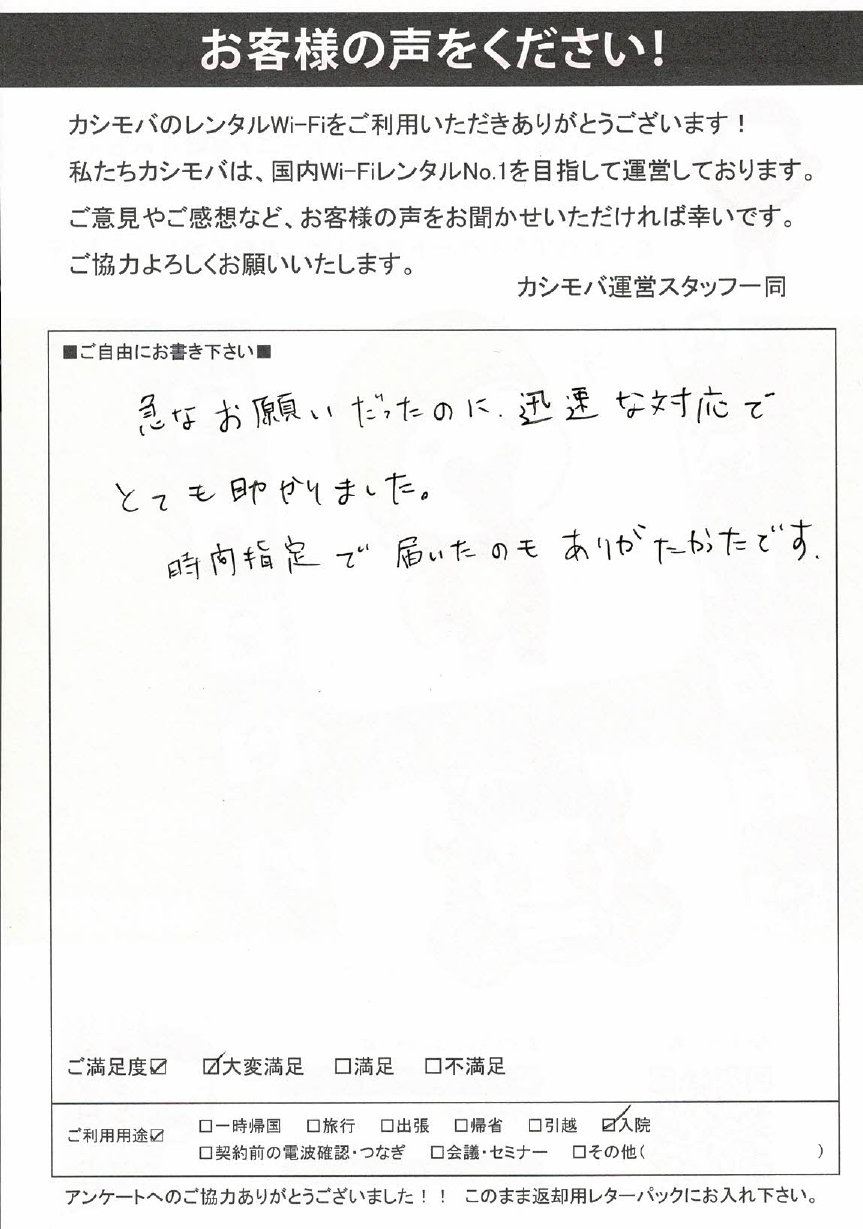 お客様の声をください!
カシモバのレンタルWi-Fiをご利用いただきありがとうございます！
私たちカシモバは、国内Wi-FiレンタルNo.1を目指して運営しております。
ご意見やご感想など、お客様の声をお聞かせいただければ幸いです。
ご協力よろしくお願いいたします。
カシモバ運営スタッフ一同
■ご自由にお書き下さい■
急なお願いだったのに、迅速な対応で
とても助かりました。
時間指定で届いたのもありがたかったです.
ご満足度☑ ☑大変満足 □満足 □不満足
ご利用用途☑ □一時帰国 □旅行 □出張 □帰省 □引越 ☑入院
□契約前の電波確認・つなぎ □会議・セミナー □その他( )
アンケートへのご協力ありがとうございました！！ このまま返却用レターパックにお入れ下さい。